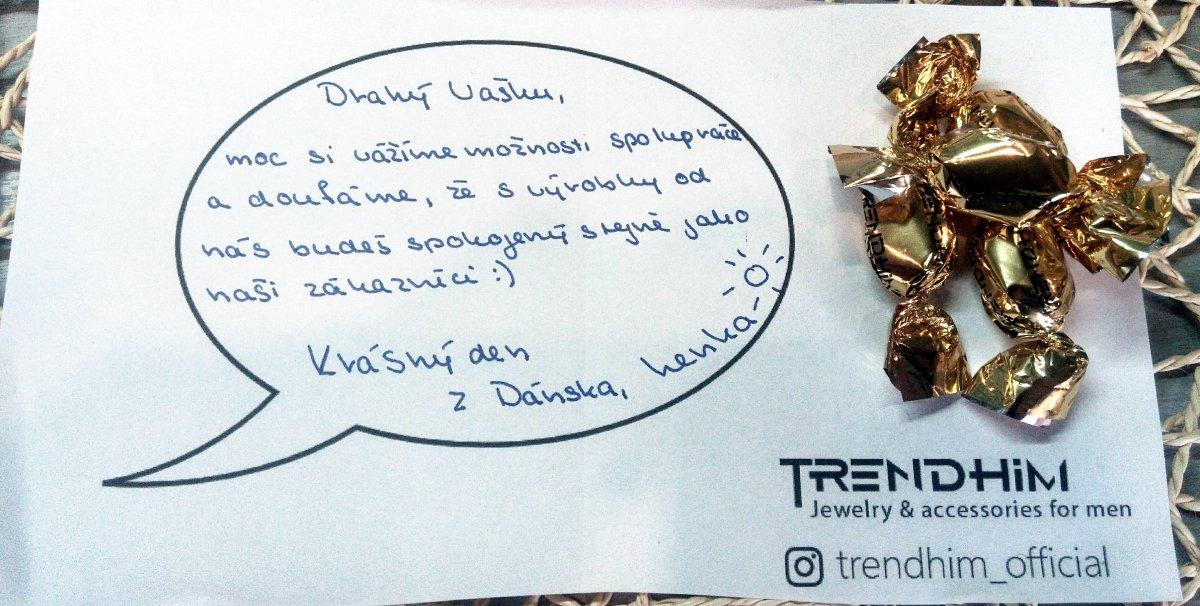 Drahý Vašku,
moc si vážíme možnosti spolupráce
a doufáme, že s výrobky od
nás budeš spokojený stejně jako
naši zákazníci :)
Krásný den
z Dánska, Lenka
TRENDHIM
Jewelry & accessories for men
trendhim_official
TRENDHIM